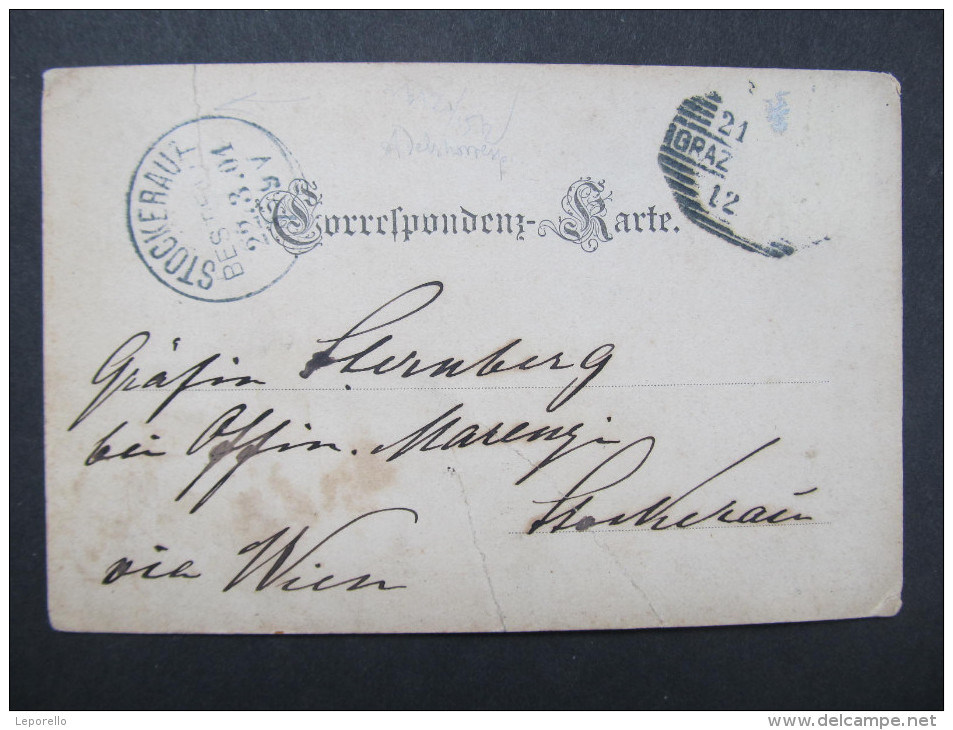 STOCKERAU 1
BESTELLT
26.3.01
9 V
21
GRAZ
12
Correspondenz-Karte.
Gräfin Sternberg
bei Gffin. Marenzi
Stockerau
via Wien
Leporello
www.delcampe.net